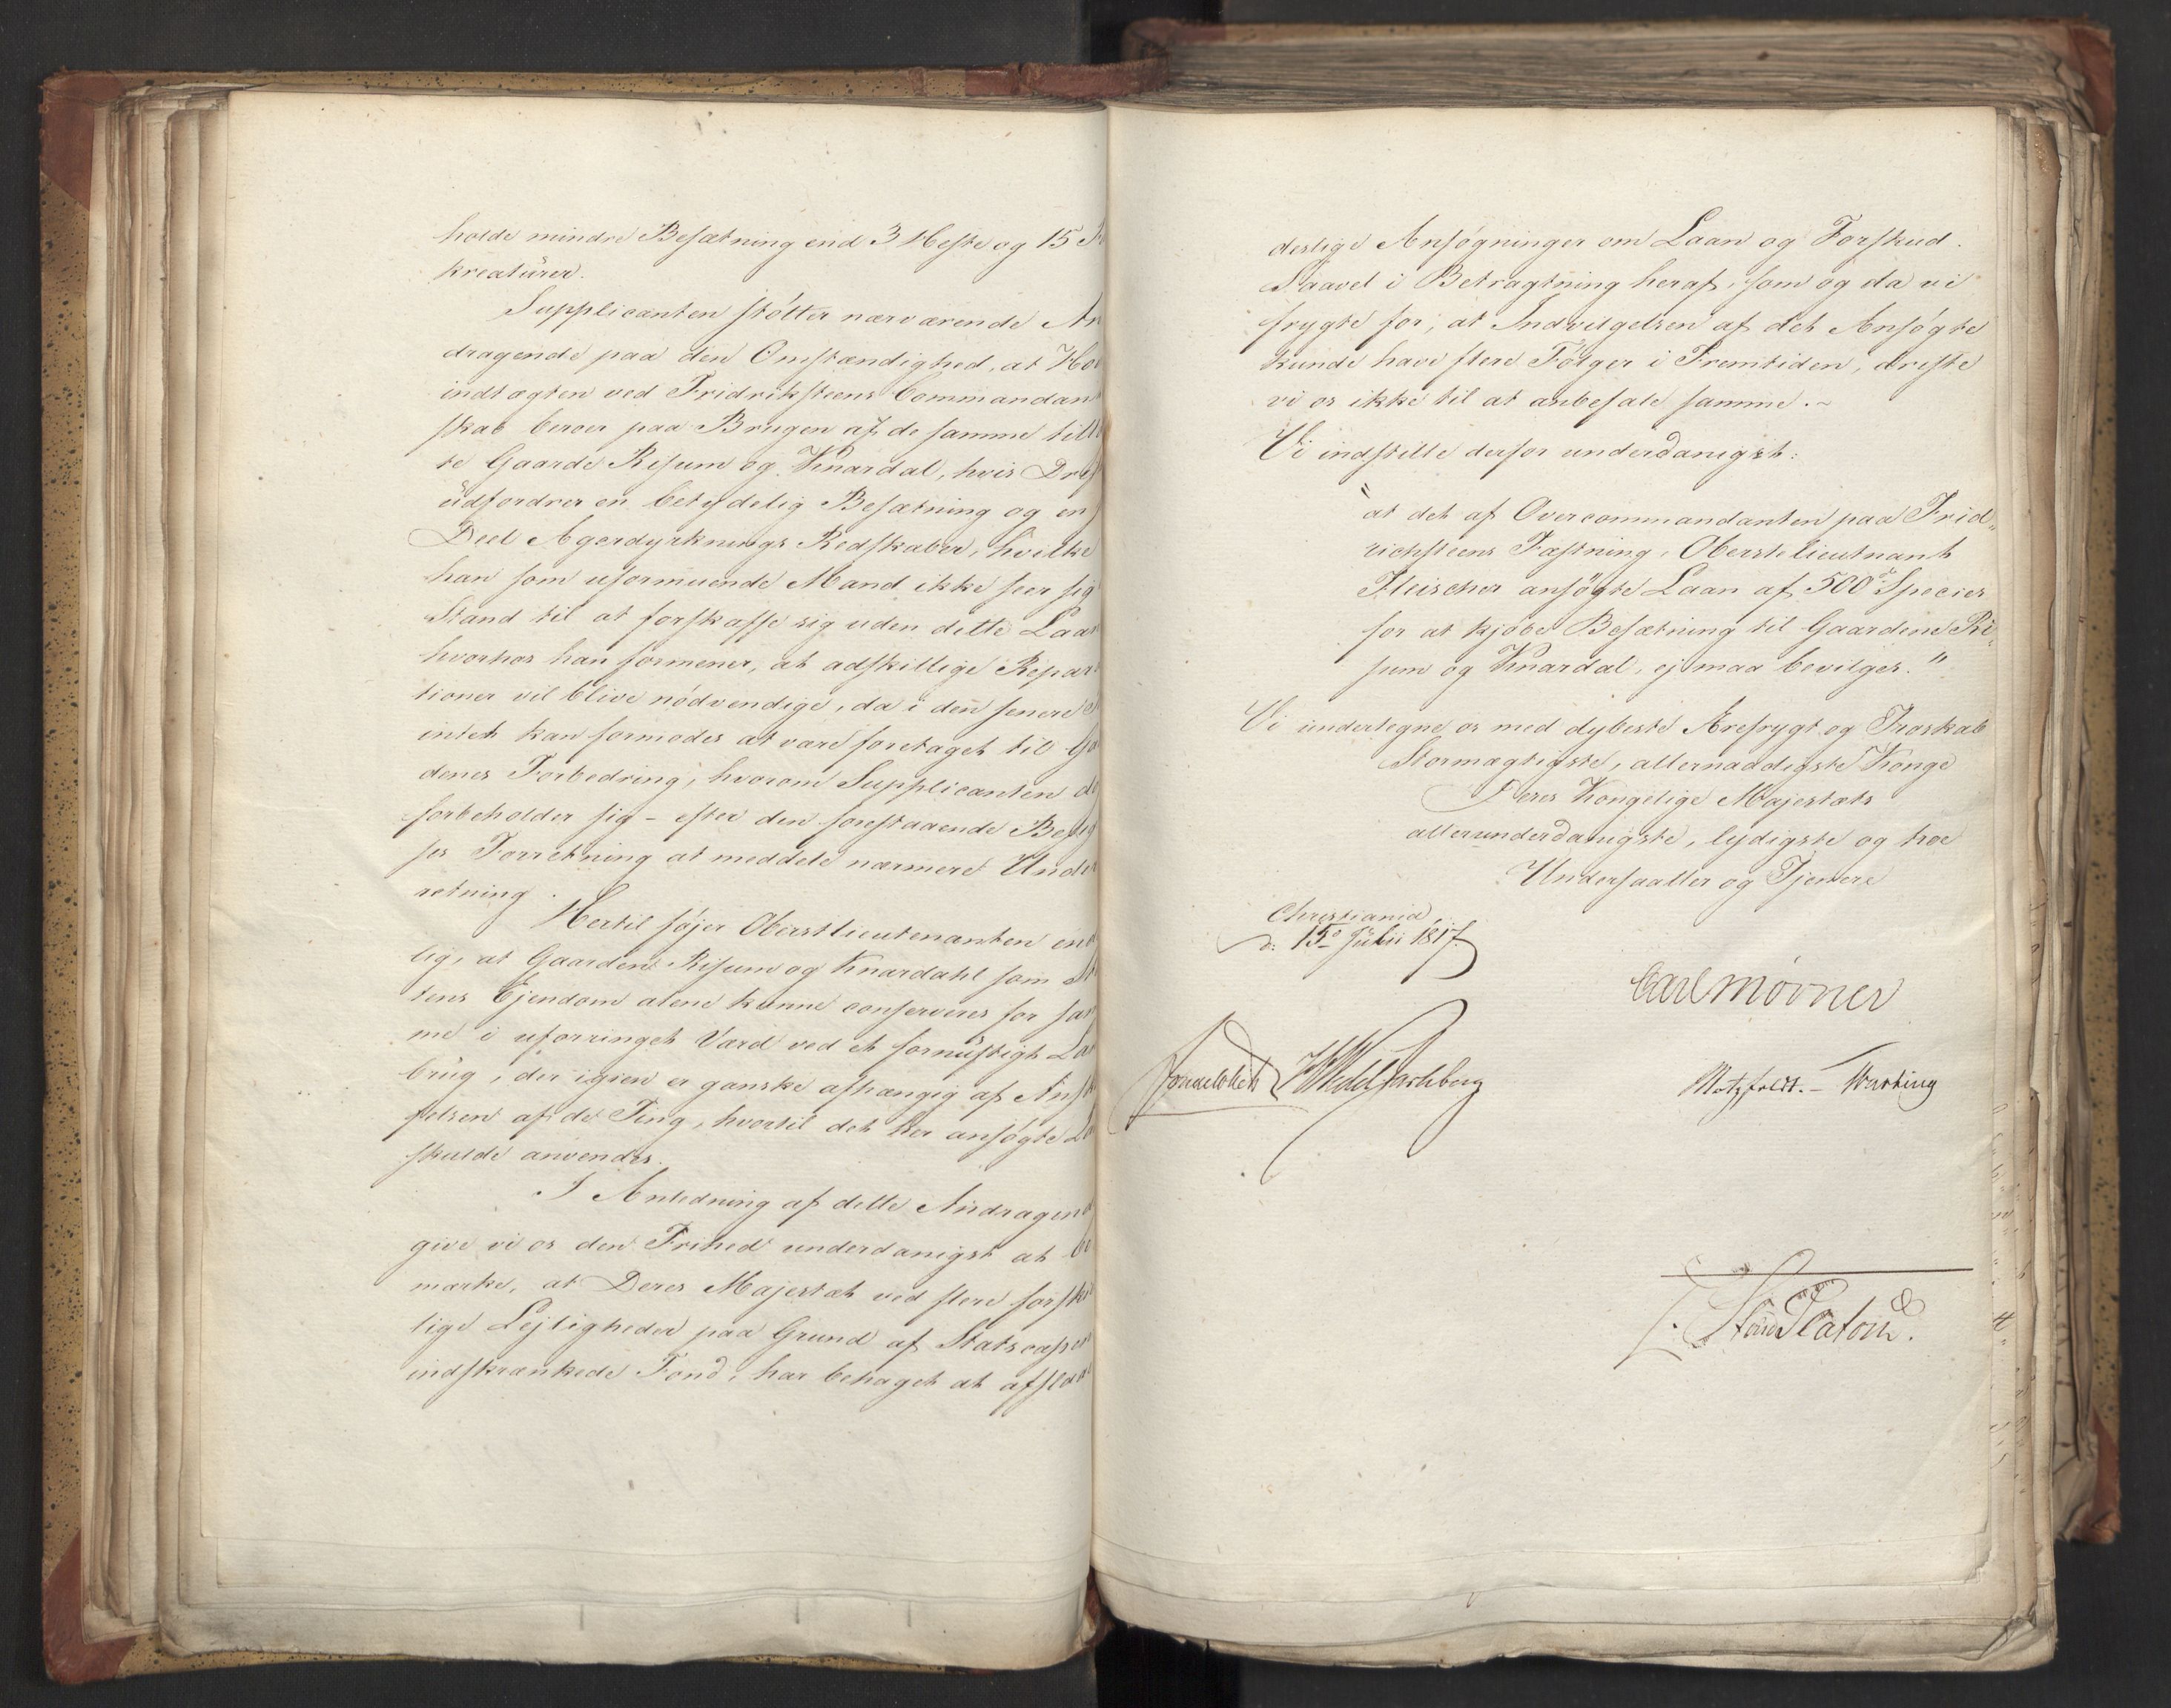 holde mindre Besætning end 3 Heste og 15
kreatürer.
Supplicanten støtter nærværende An
dragende paa den Omstændighed, at Hov
indtægten ved Fridriksteens Commandant
skab beroer paa Brugen af de samme tillag
te Gaarde Risum og Knardal, hvis Drift
üdfordrer en betydelig Besætning og en
Deel Agerdyrknings Redskaber, hvilke
han som uformuende Mand ikke seer sig
Stand til at forskaffe sig uden dette Laan
hvorhos han formener, at adskillige Repara
tioner vil blive nödvendige, da i den senere
intet kan formodes at være foretaget til Gaar
denes Forbedring, hvorom Supplicanten
forbeholder sig – efter den forestaaende Besig
ses Forretning at meddele nærmere Under
retning.
Hertil føjer Oberstlieutenanten end
lig, at Gaardene Risum og Knardahl som Sta
tens Ejendom alene kunne conserveres for sam
me i uforringet Værd ved et fornüftigt Land
brüg, der igien er ganske afhængig af Anskaf
felsen af de Ting, hvortil det her ansøgte Laan
skulde anvendes.
I Anledning af dette Andragende
give vi os den Frihed underdanigst at be
mærke, at Deres Majestæt ved flere forskjel
lige Lejligheder paa Grund af Statscassens
indskrænkede Fond, har behaget at afslaae
deslige Ansøgninger om Laan og Forskud.
Saavel i Betragtning heraf, som og da vi
frygte for, at Indvilgelsen af det Ansøgte
kunde have flere Følger i Fremtiden, driste
vi os ikke til at anbefale samme. –
Vi indstille derfor underdanigst:
"at det af Overcommandanten paa Frid„
richsteens Fæstning, Oberstelieutnant
Fleischer ansøgte Laan af 500 Species
for at kjøbe Besætning til Gaardene Ri„
sum og Knardal, ej maa bevilges."
Vi undertegne os med dybeste Ærefrygt og Troskab
Stormægtigste, allernaadigste Konge
Deres Kongelige Majestæts
allerunderdanigste, lydigste og troe
Undersaatter og Tjenere
Christiania,
d: 15de Julii 1817
Carl Mörner
Sommelkleds HWedel Jarlsberg
Motzfeldt. – Krohg
L. Stoud Platou.